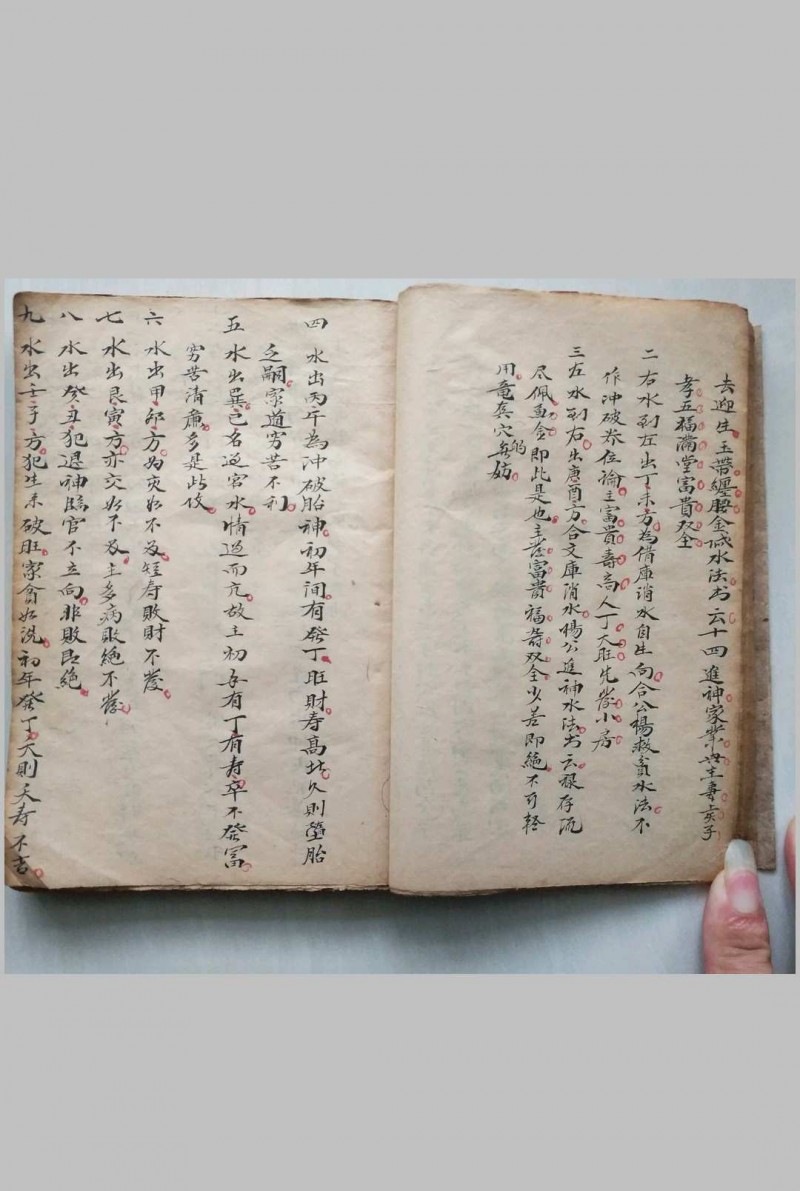 去迎生玉帶纏腰金城水法書云十四進神家業興主妻賢子
孝五福滿堂富貴双全
二右水到左出丁未方為借庫消水自生向合公楊救貧水法不
作冲破养位論主富貴壽高人丁大旺先發小房
三左水到右出庚酉方合文庫消水楊公進神水法書云祿存流
尽佩魚金即此是也主發富貴福壽双全少差即絕不可輕
用竜真穴的無妨
四水出丙午為冲破胎神初年间有發丁旺財壽高者久則墮胎
乏嗣家道穷苦不利
五水出巽巳名过宮水情过而亢故主初年有丁有寿卒不發富
穷苦清廉多是此位
六水出甲卯方為交如不及短寿敗財不發
七水出艮寅方亦交如不及主多病敗絕不發
八水出癸丑犯退神臨官不立向非敗即絕
九水出壬子方犯生來破旺家貧如洗初年發丁久則夭寿不吉